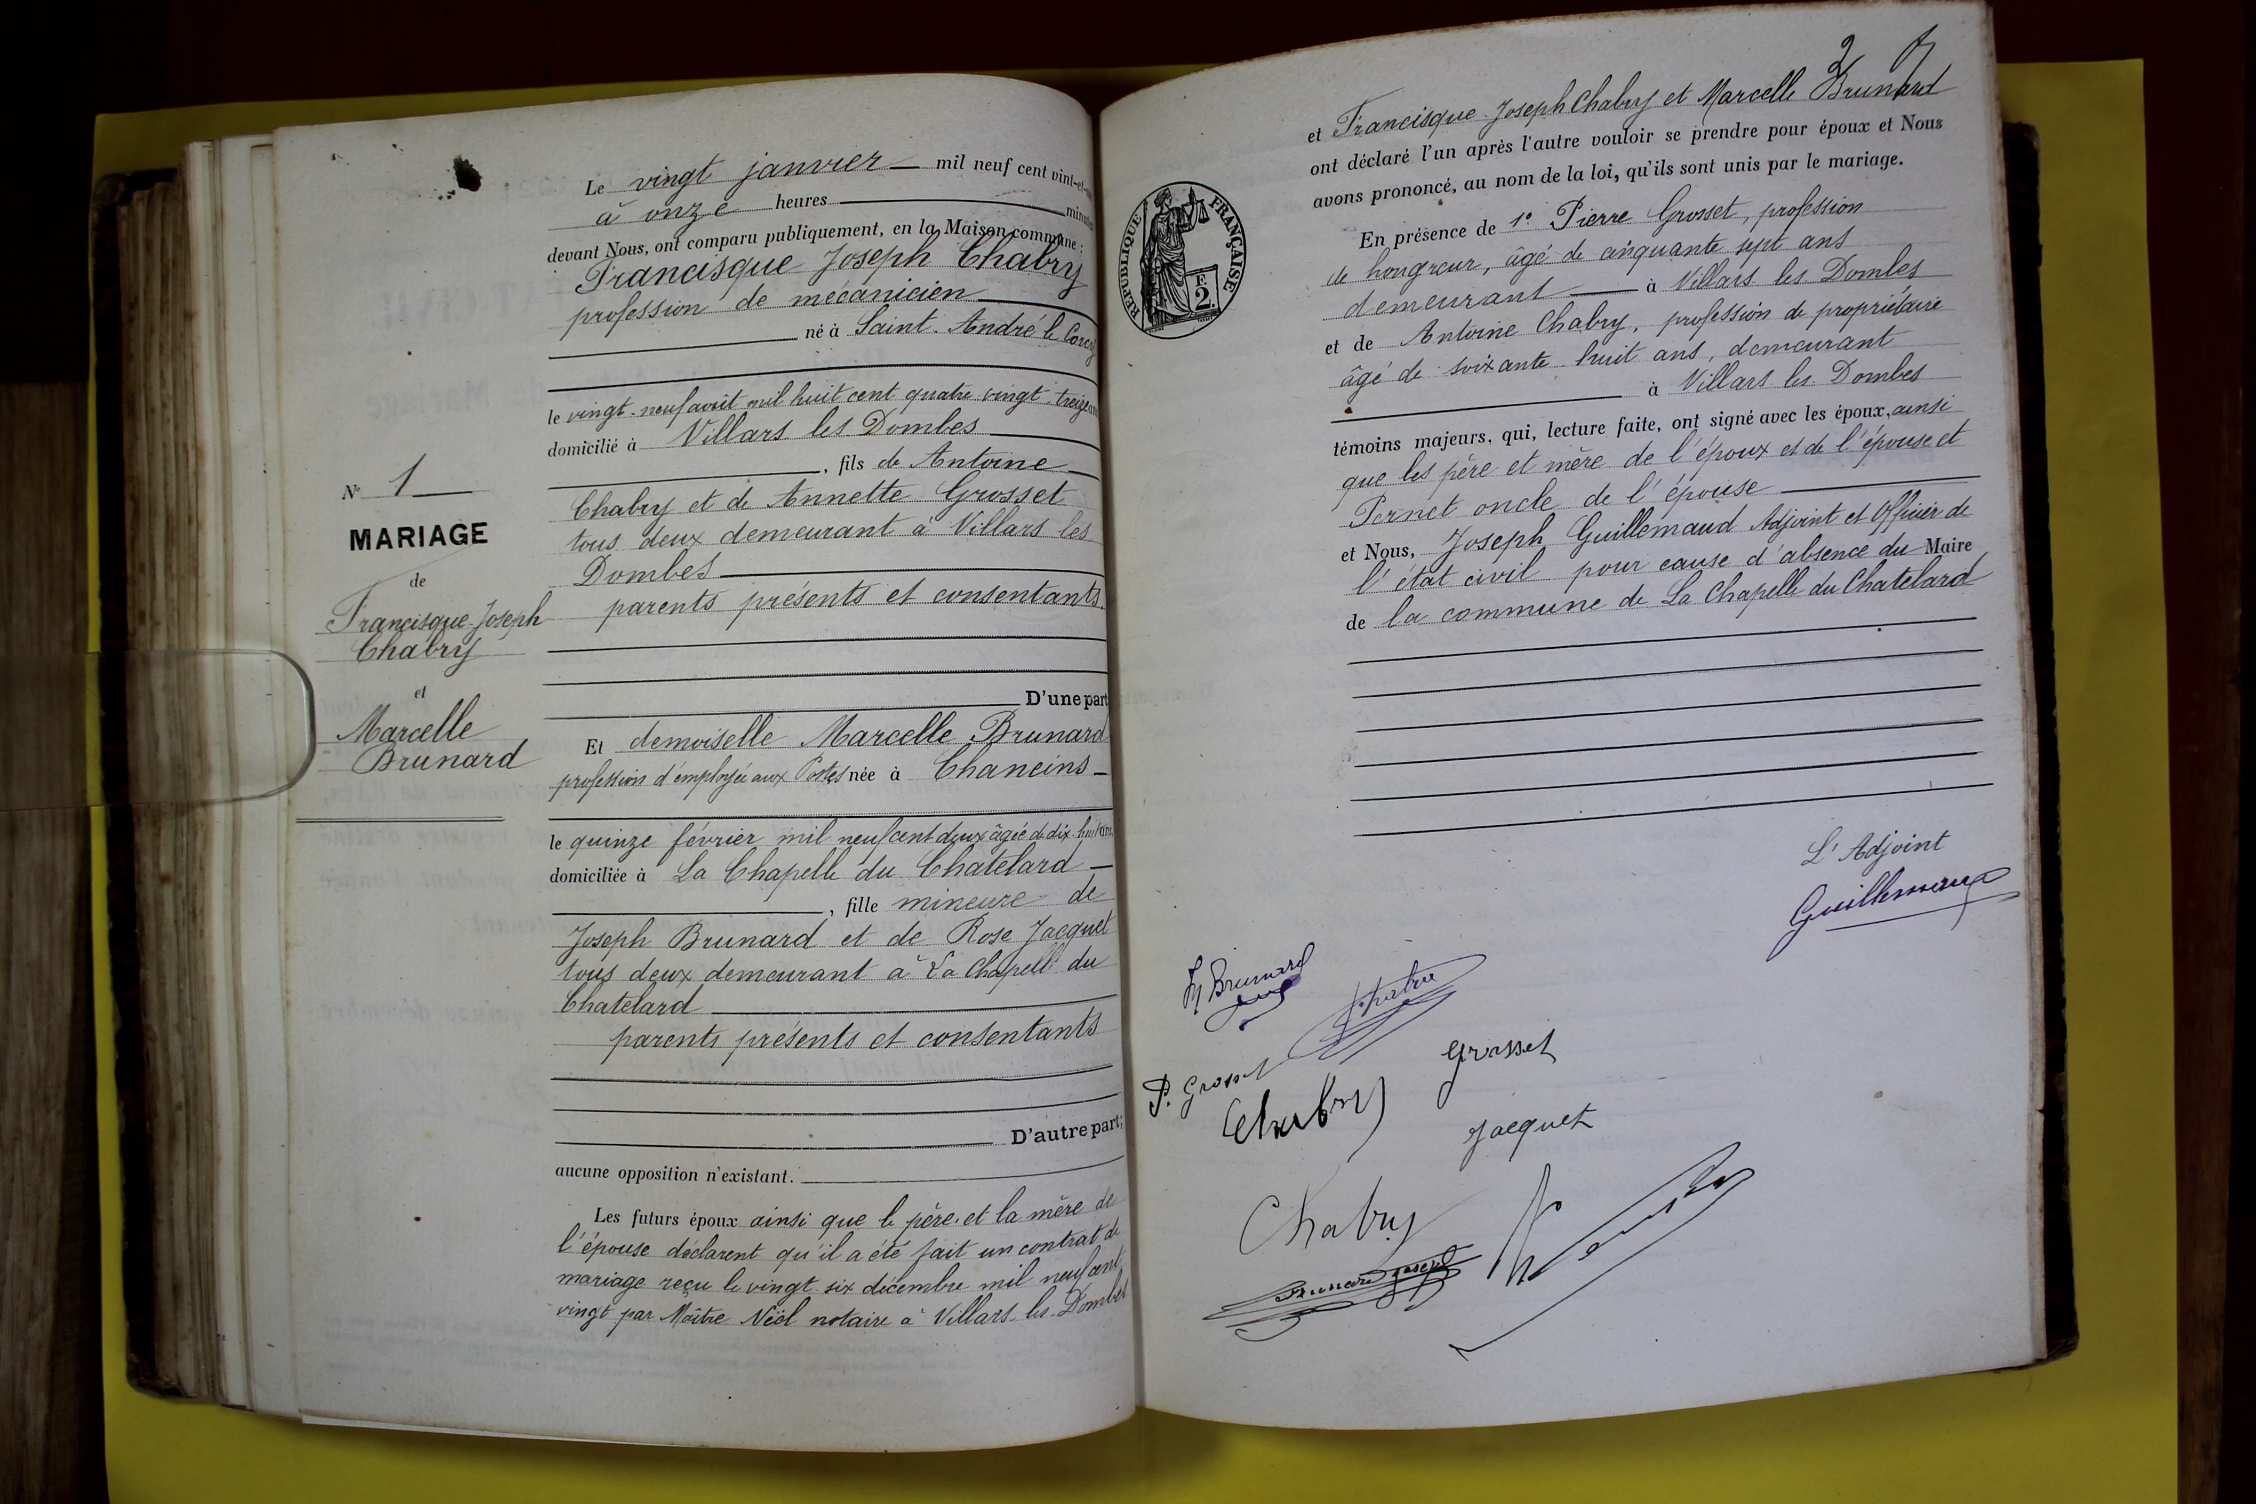 Le vingt janvier mil neuf cent vint-et-
à onze heures minutes
devant Nous, ont comparu publiquement, en la Maison commune :
Francisque Joseph Chabry
profession de mécanicien
né à Saint-André le Corcy
le vingt-neuf avril mil huit cent quatre vingt-treize
domicilié à Villars les Dombes
, fils de Antoine
Chabry et de Annette Grosset
tous deux demeurant à Villars les
Dombes
parents présents et consentants.
D'une part
Et demoiselle Marcelle Brunard
profession d'employée aux Postes née à Chaneins
le quinze février mil neuf cent deux âgée de dix-huit ans
domiciliée à La Chapelle du Chatelard
, fille mineure de
Joseph Brunard et de Rose Jacquet
tous deux demeurant à La Chapelle du
Chatelard
parents présents et consentants
D'autre part;
aucune opposition n'existant.
Les futurs époux ainsi que le père et la mère de
l'épouse déclarent qu'il a été fait un contrat de
mariage reçu le vingt six décembre mil neuf cent
vingt par Maître Néel notaire à Villars-les-Dombes
N° 1
MARIAGE
de
Francisque Joseph
Chabry
et
Marcelle
Brunard
2
et Francisque Joseph Chabry et Marcelle Brunard
ont déclaré l'un après l'autre vouloir se prendre pour époux et Nous
avons prononcé, au nom de la loi, qu'ils sont unis par le mariage.
RÉPUBLIQUE FRANÇAISE
F.
2.
En présence de 1° Pierre Grosset, profession
de hongreur, âgé de cinquante sept ans
demeurant à Villars les Dombes
et de Antoine Chabry, profession de propriétaire
âgé de soixante huit ans, demeurant
à Villars les Dombes
témoins majeurs, qui, lecture faite, ont signé avec les époux, ainsi
que les père et mère de l'époux et de l'épouse et
Pernet oncle de l'épouse
et Nous, Joseph Guillemaud Adjoint et Officier de
l'état civil pour cause d'absence du Maire
de la commune de La Chapelle du Chatelard
L'Adjoint
Guillemaud
M Brunard
P. Grosset
Grosset
Chabry
Jacquet
Chabry
Brunard Joseph